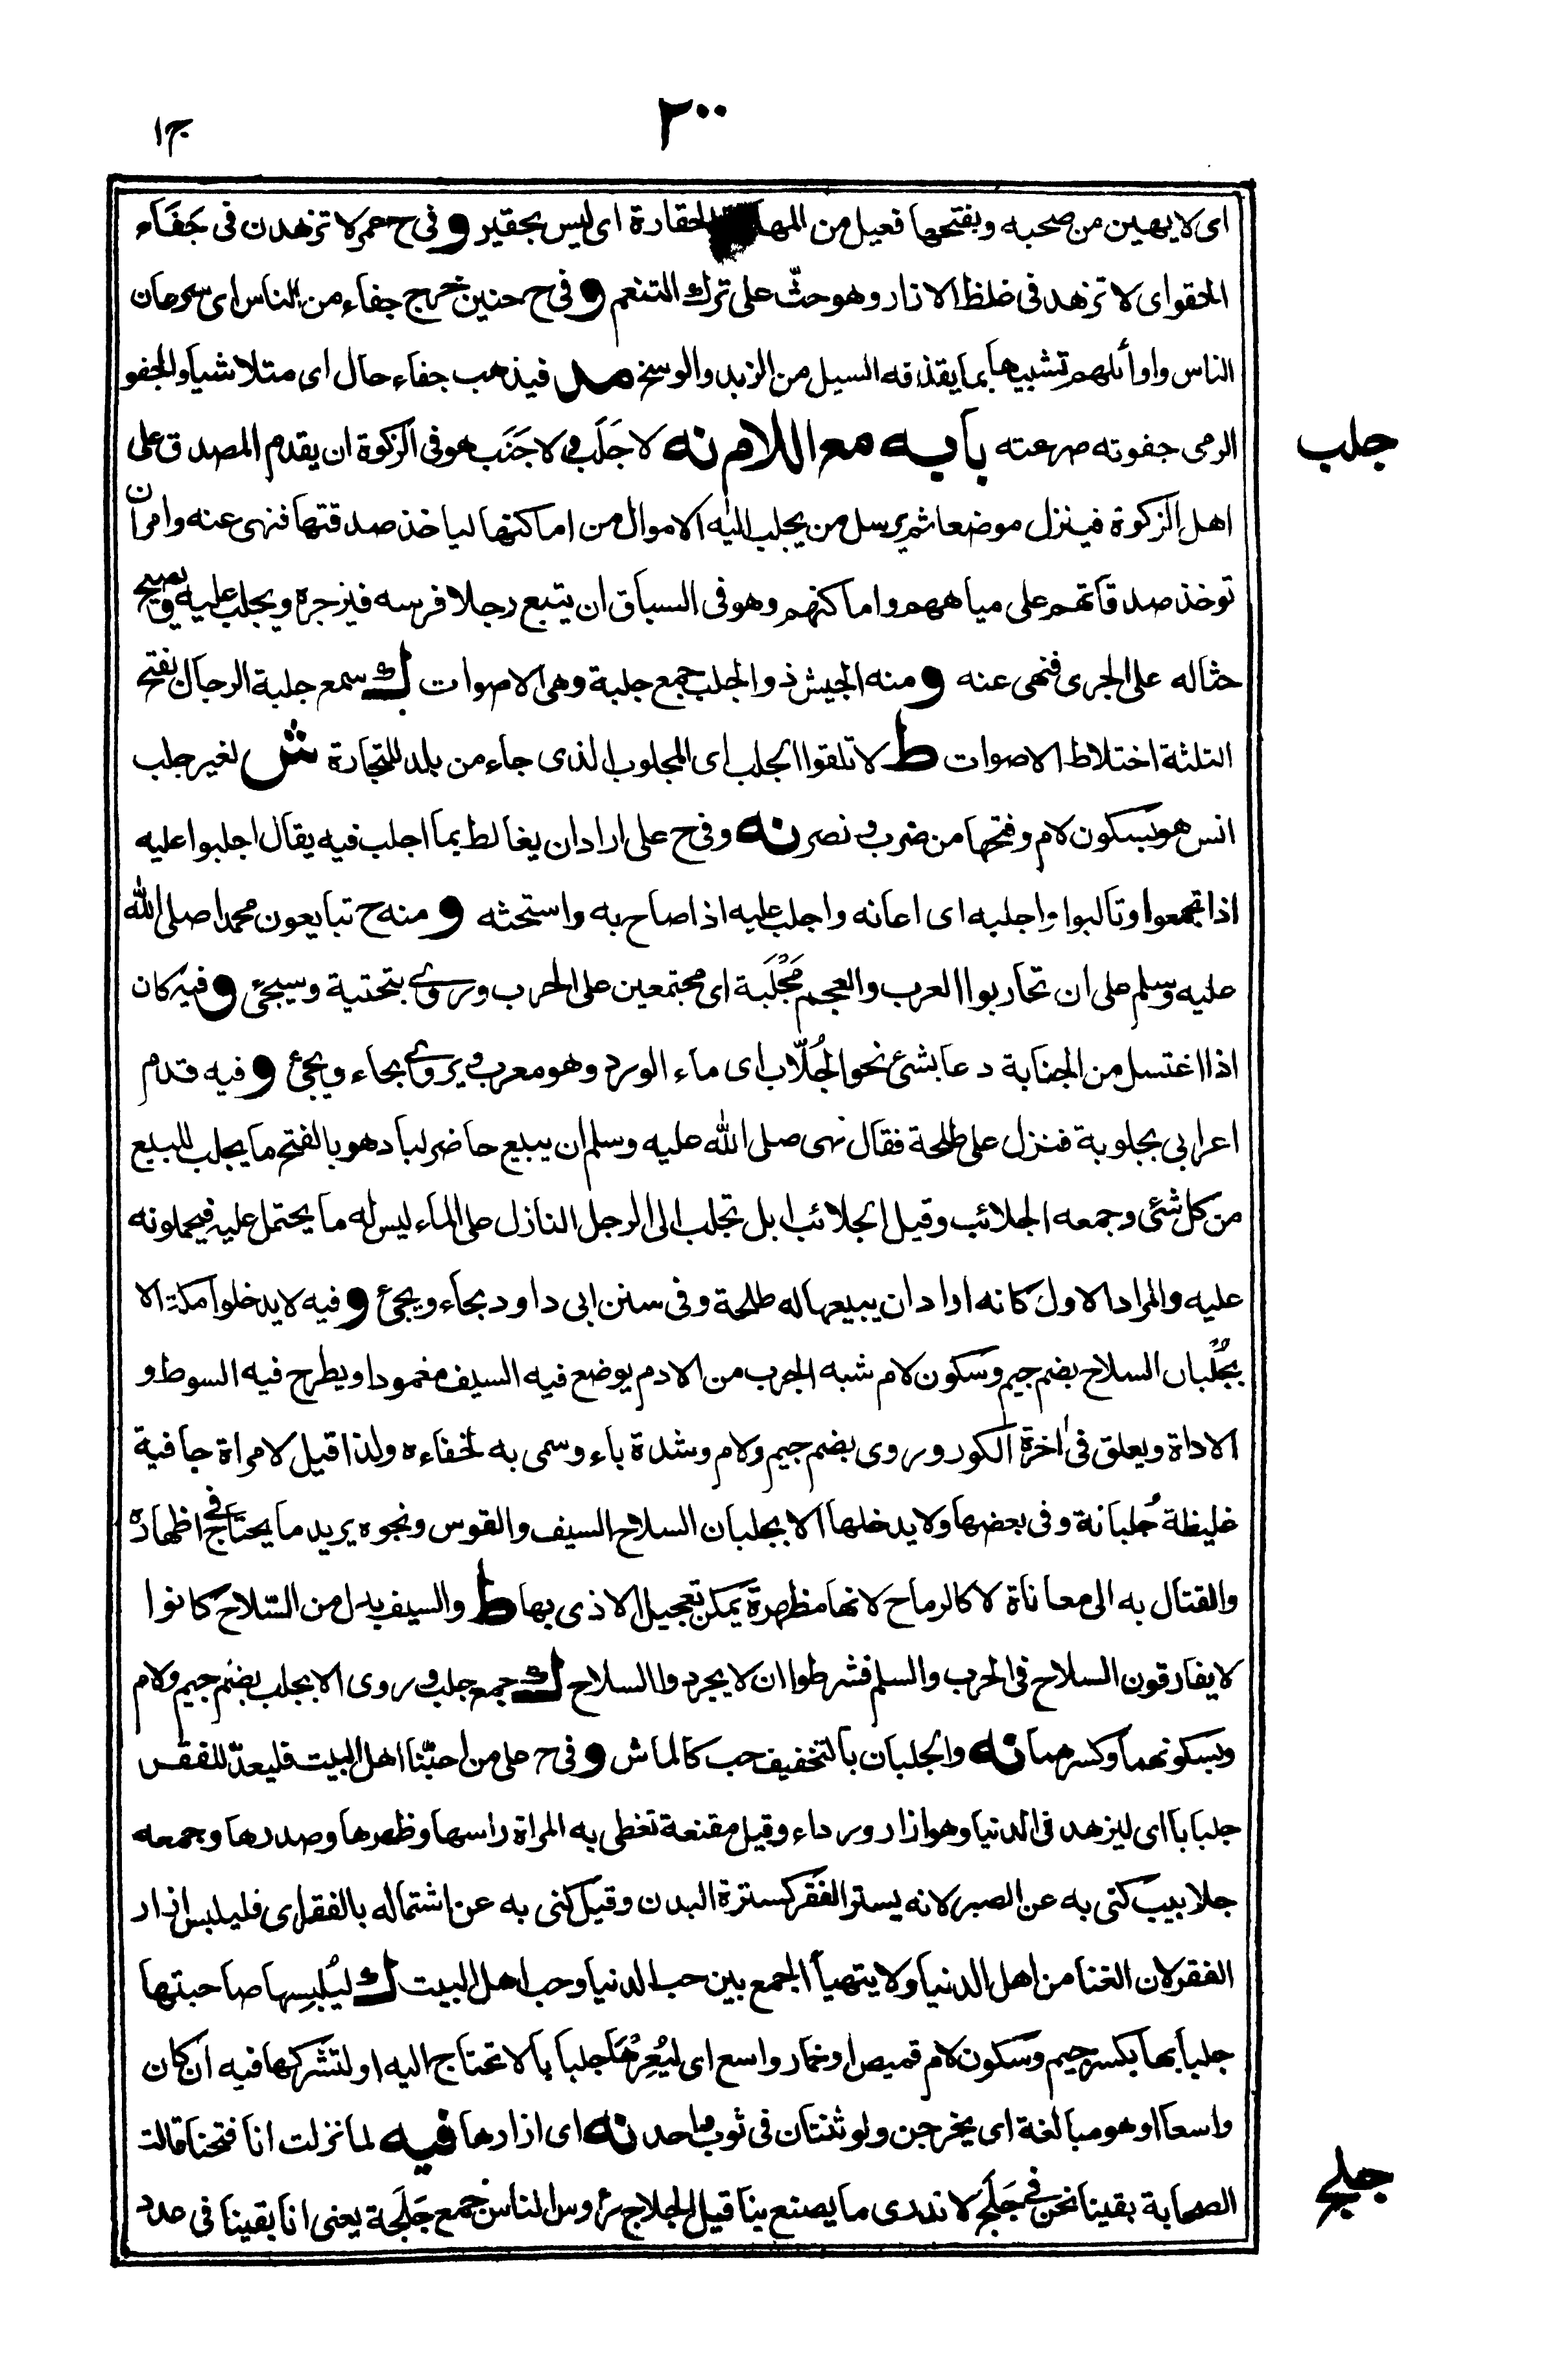 ٢٠٠
ج١
اى لا يهين من صحبه وبفتحها فعيل من المها الحقارة اى ليس بحقير و فى ح عمر لا تزهدن فى جَفَاء
الحقو اى لا تزهد فى غلظ الازار وهو حثّ على ترك التنعم و فى ح حنين خرج جفاء من الناس اى سرعان
الناس واوأئلهم تشبيها بما يقذفه السيل من الزبد والوسخ مد فيذهب جفاء حال اى متلاشيا والجفو
الرمى جفوته صرعته بابه مع اللام نه لا جَلَب ولا جَنَب هو فى الزكوة ان يقدم المصدق على
جلب
اهل الزكوة فينزل موضعا ثم يرسل من يجلب اليه الاموال من اماكنها لياخذ صدقتها فنهى عنه وامر ان
توخذ صدقاتهم على مياههم واماكنهم وهو فى السباق ان يتبع رجلا فرسه فيزجره ويجلب عليه ويصيح
حثا له على الجرى فنهى عنه و منه الجيش ذو الجلب جمع جلبة وهى الاصوات ك سمع جلبة الرجال بفتح
الثلثة اختلاط الاصوات ط لا تلقوا الجلب اى المجلوب الذى جاء من بلد للتجارة ش لغير جلب
انس هو بسكون لام وفتحها من ضرب ونصر نه وفى ح على اراد ان يغالط بما اجلب فيه يقال اجلبوا عليه
اذا تجمعوا وتالبوا واجلبه اى اعانه واجلب عليه اذا صاح به واستحثه و منه ح تبايعون محمدا صلى الله
عليه وسلم على ان تحاربوا العرب والعجم مُجْلَبة اى مجتمعين على الحرب وروى بتحتية وسيجئ و فيه كان
اذا اغتسل من الجنابة دعا بشئ نحو الجُلّاب اى ماء الورد وهو معرب ويروى بحاء ويجئ و فيه قدم
اعرابى بجلوبة فنزل على طلحة فقال نهى صلى الله عليه وسلم ان يبيع حاضر لباد هو بالفتح ما يجلب للبيع
من كل شئ وجمعه الجلائب وقيل الجلائب ابل تجلب الى الرجل النازل على الماء ليس له ما يحتمل عليه فيحملونه
عليه والمراد الاول كانه اراد ان يبيعها له طلحة وفى سنن ابى داود بحاء ويجئ و فيه لا يدخلوا مكة الا
بجُلْبان السلاح بضم جيم وسكون لام شبه الجرب من الادم يوضع فيه السيف مغمودا ويطرح فيه السوط و
الاداة ويعلق فى اخرة الكور وروى بضم جيم ولام وشدة باء وسمى به لخفاءه ولذا قيل لامراة جافية
غليظة جُلبانة وفى بعضها ولا يدخلها الا بجلبان السلاح السيف والقوس ونحوه يريد ما يحتاج فى اظهاره
والقتال به الى معاناة لا كالرماح لانها مظهرة يمكن تعجيل الاذى بها ط والسيف بدل من السّلاح كانوا
لا يفارقون السلاح فى الحرب والسلم فشرطوا ان لا يجردوا السلاح ك جمع جلب وروى الا بجلب بضم جيم ولام
وبسكونهما وكسرهما نه والجلبان بالتخفيف حب كالماش و فى ح على من احبّنا اهل البيت فليعدّ للفقر
جلبابا اى ليزهد فى الدنيا وهو ازار ورداء وقيل مقنعة تغطى به المراة راسها وظهرها وصدرها وجمعه
جلابيب كنى به عن الصبر لانه يستر الفقر كسترة البدن وقيل كنى به عن اشتماله بالفقر اى فليلبس ازار
الفقر لان الغنا من اهل الدنيا ولا يتهيأ الجمع بين حب الدنيا وحب اهل البيت ك ليُلبِسها صاحبتها
جلبابها بكسر جيم وسكون لام قميص او خمار واسع اى ليُعِرْهَا جلبابا لا تحتاج اليه او لتشركها فيه ان كان
واسعا او هو مبالغة اى يخرجن ولو ثنتان فى ثوب واحد نه اى ازارها فيه لما نزلت انا فتحنا قالت
الصحابة بقينا نحن فى جَلَجٍ لا ندرى ما يصنع بنا قيل الجلاج رؤس الناس جمع جَلَجة يعنى انا بقينا فى عدد
جلج